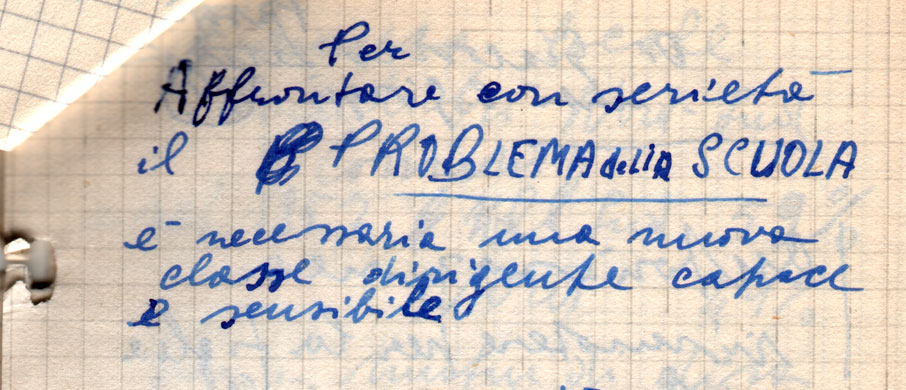 Per
Affrontare con serietà
il PROBLEMA della SCUOLA
è necessaria una nuova
classe dirigente capace
e sensibile